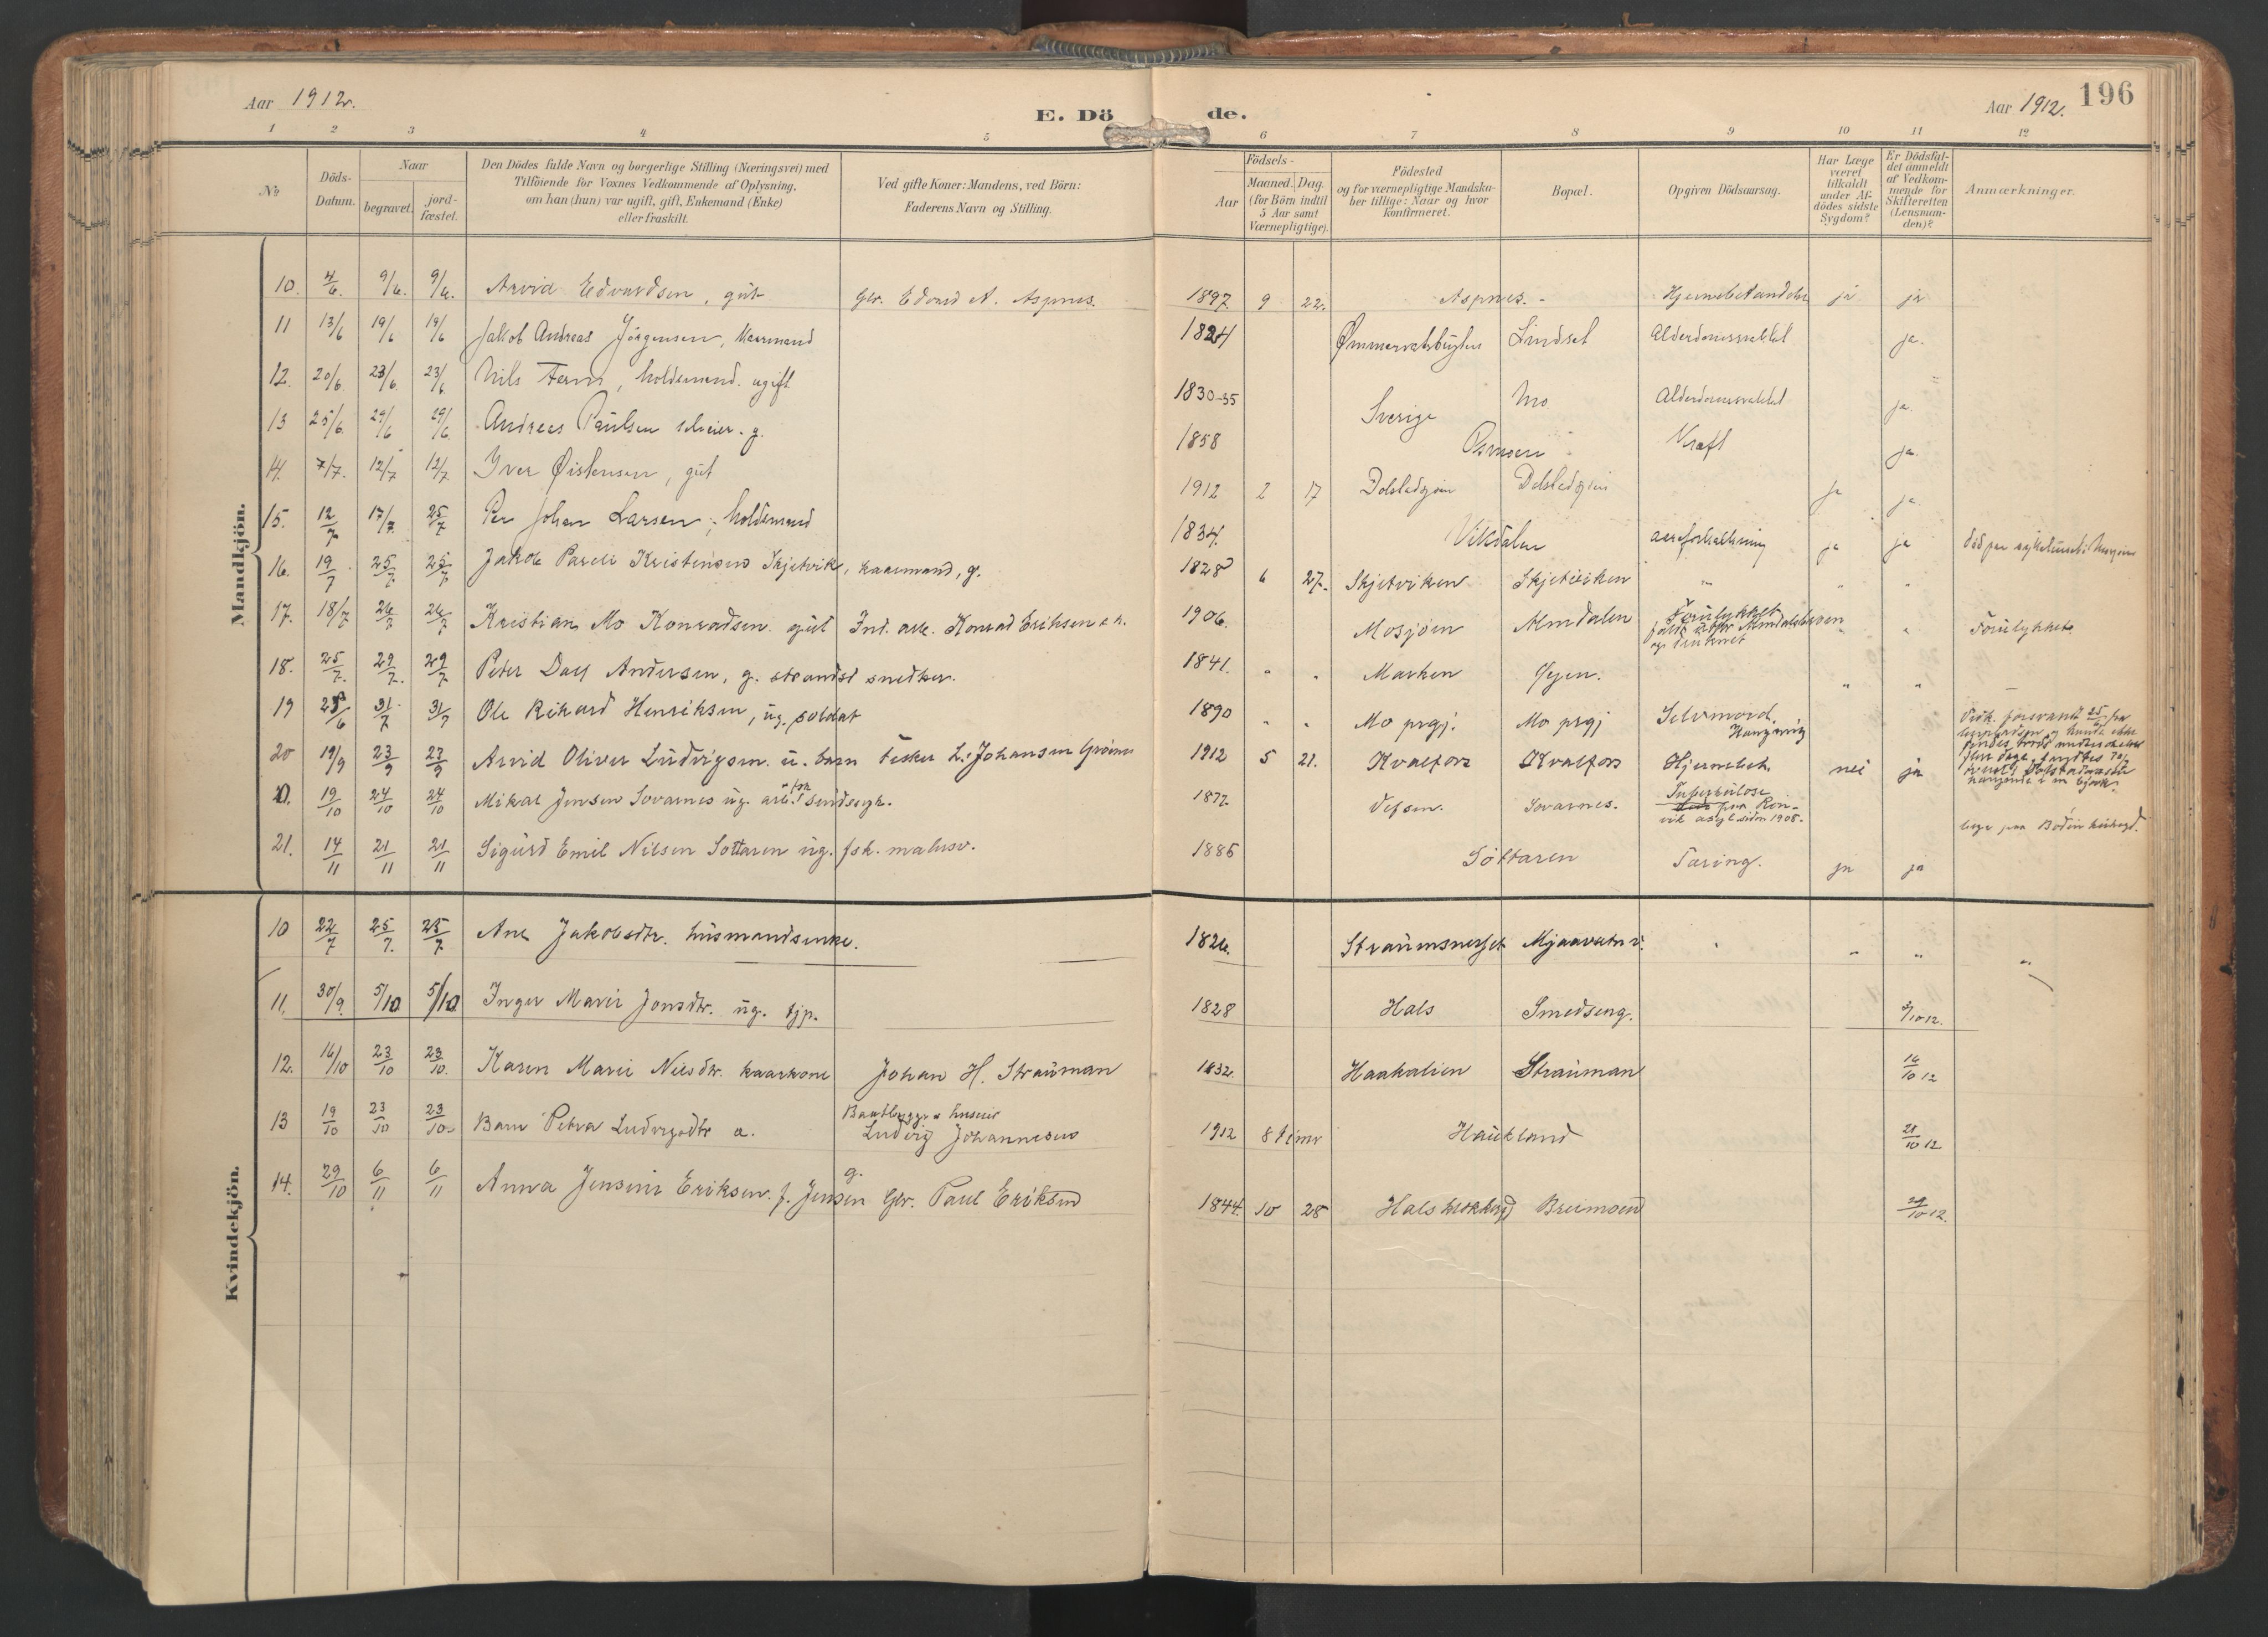 Aar 1912.
E. Dö
de.
Aar 1912. 196
1 2 3 4 5 6 7 8 9 10 11 12
No
Döds-
Datum.
Naar
begravet.
jord-
fæstet.
Den Dödes fulde Navn og borgerlige Stilling (Næringsvei) med
Tilföiende for Voxnes Vedkommende af Oplysning,
om han (hun) var ugift, gift, Enkemand (Enke)
eller fraskilt.
Ved gifte Koner: Mandens, ved Börn:
Faderens Navn og Stilling.
Födsels-
Aar
Maaned. Dag
(for Börn indtil
5 Aar samt
Værnepligtige).
Födested
og for værnepligtige Mandska-
ber tillige: Naar og hvor
konfirmeret.
Bopæl.
Opgiven Dödsaarsag.
Har Læge
været
tilkaldt
under Af-
dödes sidste
Sygdom?
Er Dödsfal-
det anmeldt
af Vedkom-
mende for
Skifteretten
(Lensman-
den)?
Anmærkninger.
Mandkjön.
10. 4/6. 9/6. 9/6. Arvid Edvardsen, gut Gbr. Edvard A. Aspnes. 1897. 9 22. Aspnes. ja ja
11 13/6 19/6 19/6 Jakob Andreas Jörgensen, Kaarmand 1824 Lindset Alderdomssvakhet ja.
12. 20/6 23/6 23/6 Nils holdsmand. ugift 1830-35 Sverige Mo Alderdomssvakhet ja.
13 25/6. 29/6 29/6. Andreas Paulsen g. 1858 Osmoen Kræft ja.
14. 7/7. 12/7 12/7 Iver Øistensen, gut 1912 2 17 ja ja
15. 12/7 17/7. 25/7 Per Johan Larsen, holdsmand 1834. Vikdalen aareforkalkning ja ja
16. 19/7 25/7. 25/7 Jakob Pareli Kristensen Skjetvik, kaarmand, g. 1828 6 27. Skjetviken Skjetviken " " "
17. 18/7 26/7 26/7 Kristian Mo Konradsen gut Ind. arb. Konrad Eriksen 1906. Mosjøen Almdalen Forulykket
faldt utfor Almdalsbroen
og druknet " " Forulykket.
18. 25/7. 29/7. 29/7 Peter Dass Andersen, g. strandsd snedker. 1841. " " Marken Øyen. " "
19 25/6 31/7 31/7 Ole Rikard Henriksen, ug. soldat 1890 " " Mo prgj. Mo prgj Selvmord.
Hængning
20 19/9 23/9 23/9 Arvid Oliver Ludvigsen u. barn fisker L. Johansen 1912 5 21. Kvalfors Kvalfors Hjernebet. nei ja
19/10 24/10 24/10 Mikal Jensen Sovarnes ug. arb. sindssyk. 1877. Vefsen. Sovarnes. Tuberkulose
paa Rön-
vik asyl siden 1908.
21. 14/11 21/11 21/11 Sigurd Emil Nilsen Sottaren ug. fsk. 1885 Söttaren Tæring. ja ja
Kvindekjön.
10 22/7 25/7. 25/7. Ane Jakobsdtr. husmandsenke. 1826. Mjaavatn " " "
11. 30/9. 5/10 5/10 Inger Marie Jonsdtr. ug. tjp. 1828 Hals Smedseng.
12. 16/10 23/10 23/10. Karen Marie Nilsdtr. kaarkone Johan H. Strauman 1832. Haakalien Strauman 16/10 12
13 19/10 23/10 23/10. Barn Petra Ludvigsdtr Baatbygger
Ludvig Johannesen 1912 8 timer Haukland 21/10 12
14. 29/10 6/11 6/11 Anna Jensine Eriksen. f. Jensen g. Gbr. Paul Eriksen 1844. 10 28 29/10 12.